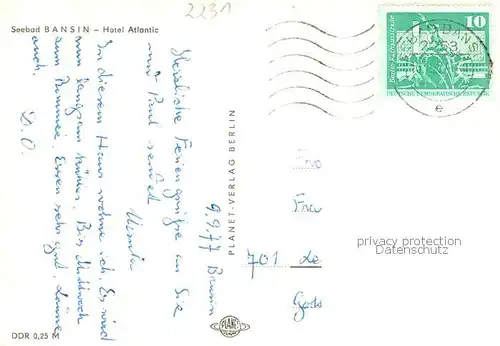 2231
Seebad BANSIN – Hotel Atlantic
9.9.77 Bansin
Herzliche Feriengrüße an Sie
und Paul sendet
Ursula
In diesem Haus wohne ich. Es wird
nun langsam kühler. Bis Mittwoch
zum Zimmer. Essen sehr gut. Laune
auch.
D. O.
DDR 0,25 M
PLANET-VERLAG BERLIN
PLANET
10
DEUTSCHE DEMOKRATISCHE REPUBLIK
SEEBAD BANSIN
2253
e
Frau
701 Le
privacy protection
Datenschutz